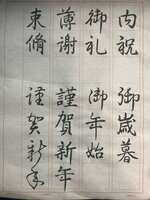 内祝 御歳暮
御礼 御年始
薄謝 謹賀新年
束脩 謹賀新年